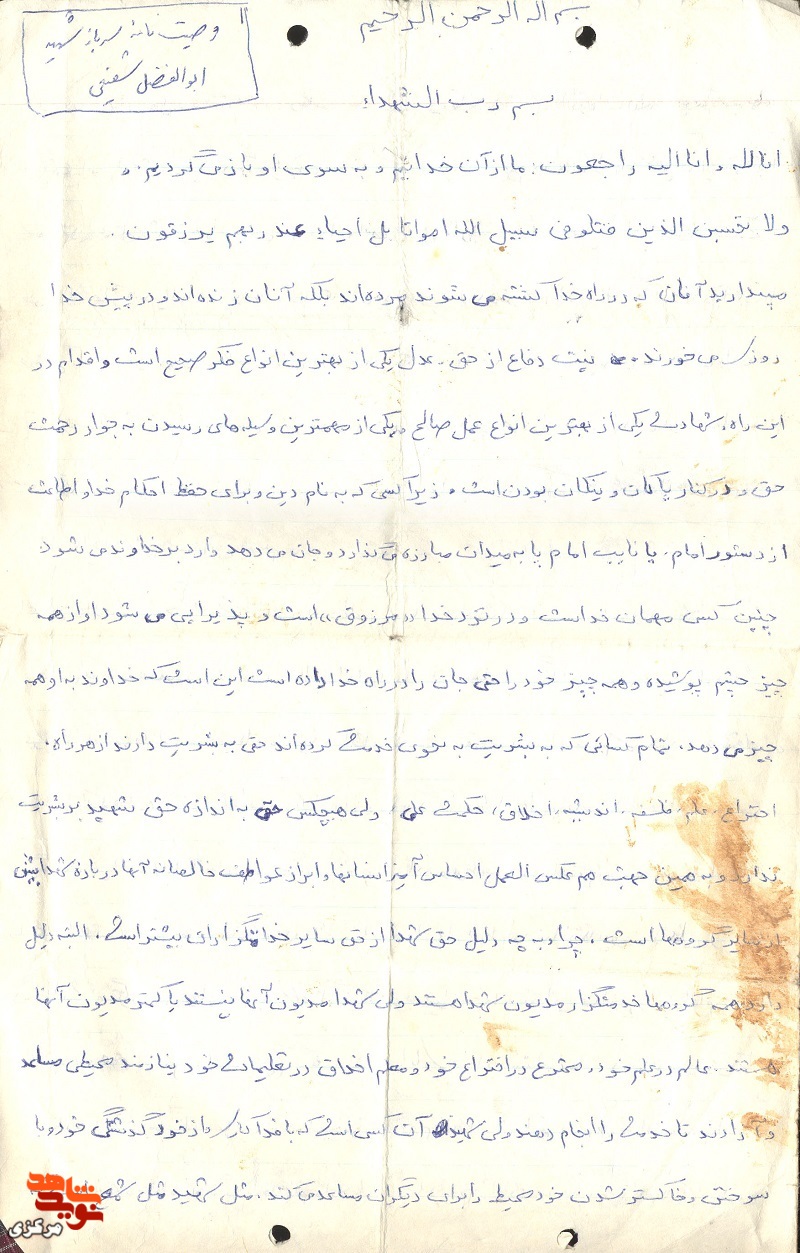 وصیت نامه سرباز شهید
ابوالفضل شفیعی
بسم اله الرحمن الرحیم
بسم رب الشهداء
انالله و انا الیه راجعون: ما از آن خدائیم و به سوی او باز می گردیم.
ولا تحسبن الذین قتلو فی سبیل الله امواتا بل احیاء عند ربهم یرزقون.
مپندارید آنان که در راه خدا کشته می شوند مرده اند بلکه آنان زنده اند و در پیش خدا
روزی می خورند. نیت دفاع از حق و عدل یکی از بهترین انواع فکر صحیح است و اقدام در
این راه، شهادت یکی از بهترین انواع عمل صالح و یکی از مهمترین وسیله های رسیدن به جوار رحمت
حق و در کنار پاکان و نیکان بودن است. زیرا کسی که به نام دین و برای حفظ احکام خدا و اطاعت
از دستور امام، یا نایب امام پا به میدان مبارزه می گذارد و جان می دهد وارد بر خداوند می شود
چنین کسی مهمان خداست و در نزد خدا «مرزوق» است و پذیرایی می شود او از همه
چیز چشم پوشیده و همه چیز خود را حتی جان را در راه خدا داده است این است که خداوند به او همه
چیز می دهد. تمام کسانی که به بشریت به نحوی خدمت کرده اند حقی به بشریت دارند از هر راه،
اختراع، علم، فلسفه، اندیشه، اخلاق، حکمت عملی، ولی هیچکس حقی به اندازه حق شهید بر بشریت
ندارد و به همین جهت هم عکس العمل احساس آمیز انسانها و ابراز عواطف خالصانه آنها درباره شهدا بیش
از سایر گروهها است. چرا و به چه دلیل حق شهدا از حق سایر خدمتگزاران بیشتر است. البته دلیل
دارد همه گروهها خدمتگزار مدیون شهدا هستند ولی شهدا مدیون آنها نیستند یا کمتر مدیون آنها
هستند. عالم در علم خود، مخترع در اختراع خود و معلم اخلاق در تعلیمات خود نیازمند محیطی مساعد
و آزادند تا خدمت را انجام دهند ولی شهید آن کسی است که با فداکاری و از خود گذشتگی خود و با
سوختن و خاکستر شدن خود محیط را برای دیگران مساعد می کند. مثل شهید مثل شمع
نوید شاهد
مرکزی